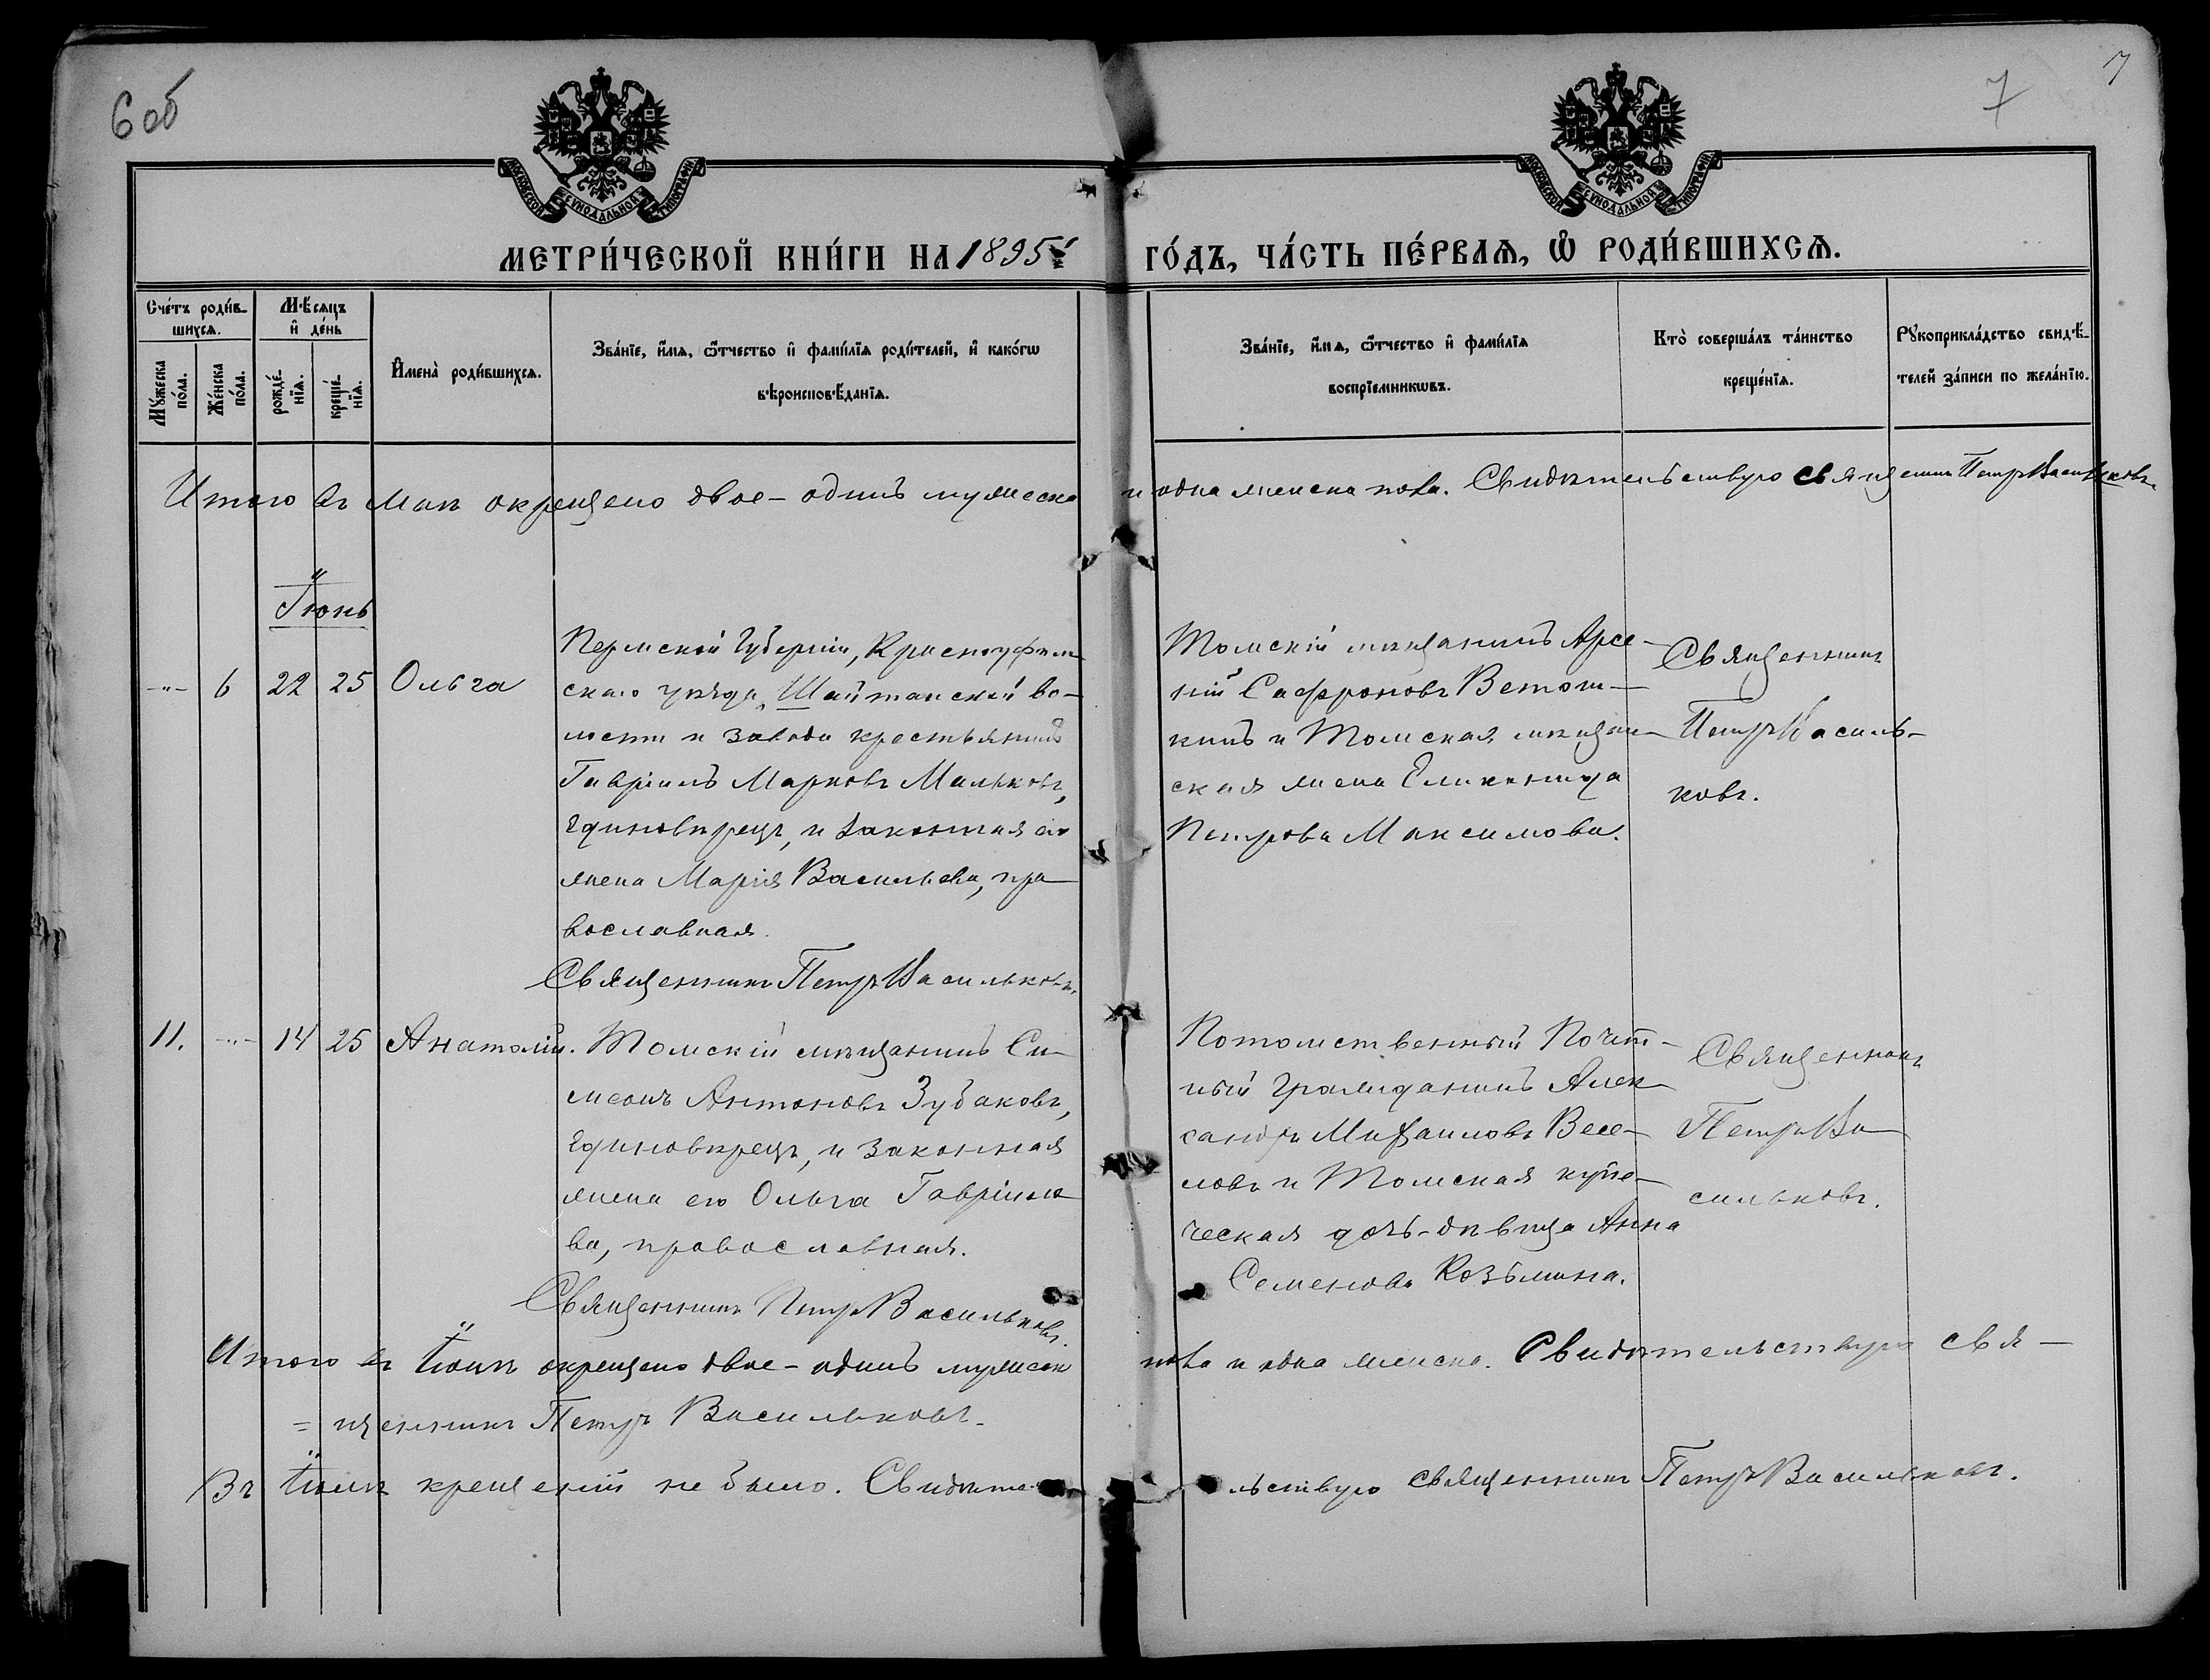 6 об
7
7
МОСКОВСКОЙ СѴНОДАЛЬНОЙ ТИПОГРАФІИ
МОСКОВСКОЙ СѴНОДАЛЬНОЙ ТИПОГРАФІИ
МЕТРИ́ЧЕСКОЙ КНИ́ГИ НА 1895й ГО́ДЪ, ЧА́СТЬ ПЕ́РВАѦ, Ѽ РОДИ́ВШИХСѦ.
Сче́тъ роди́в-
шихсѧ.
Мꙋ́жеска по́ла.
Же́нска по́ла.
Мѣ́сяцъ
и҆ де́нь
рожде́-нїѧ.
креще́-нїѧ.
И҆мена̀ роди́вшихсѧ.
Зва́нїе, и҆́мѧ, ѻ҆́тчество и҆ фами́лїѧ роди́телей, и҆ како́гѡ
вѣроисповѣ́данїѧ.
Зва́нїе, и҆́мѧ, ѻ҆́тчество и҆ фами́лїѧ
воспрїемникѡвъ.
Кто̀ соверша́лъ та́инство
креще́нїѧ.
Рꙋкоприкла́дство свидѣ́-
телей за́писи по жела́нїю.
Итого въ Маѣ окрещено двое - одинъ мужеска и одна женска пола. Свидѣтельствую священникъ Петръ Васильковъ.
Іюнь
-"- 6 22 25 Ольга
Пермской Губерніи, Красноуфим-
скаго уѣзда, Шайтанской во-
лости и завода крестьянинъ
Гавріилъ Марковъ Мальковъ,
единовѣрецъ, и законная его
жена Марія Васильева, пра-
вославная.
Священникъ Петръ Васильковъ.
Томскій мѣщанинъ Арсе-
ній Сафроновъ Ветош-
кинъ и Томская мѣщан-
ская жена Еликонида
Петрова Максимова.
Священникъ
Петръ Василь-
ковъ.
11. -"- 14 25 Анатолій.
Томскій мѣщанинъ Си-
меонъ Антоновъ Зубаковъ,
единовѣрецъ, и законная
жена его Ольга Гавріило-
ва, православная.
Священникъ Петръ Васильковъ.
Потомственный Почет-
ный гражданинъ Алек-
сандръ Михаиловъ Весе-
ловъ и Томская купе-
ческая дочь-дѣвица Анна
Семенова Козьмина.
Священникъ
Петръ Ва-
сильковъ.
Итого въ Іюнѣ окрещено двое - одинъ мужеска пола и одна женска. Свидѣтельствую свя-
= щенникъ Петръ Васильковъ.
Въ Іюлѣ крещеній не было. Свидѣтельствую священникъ Петръ Васильковъ.